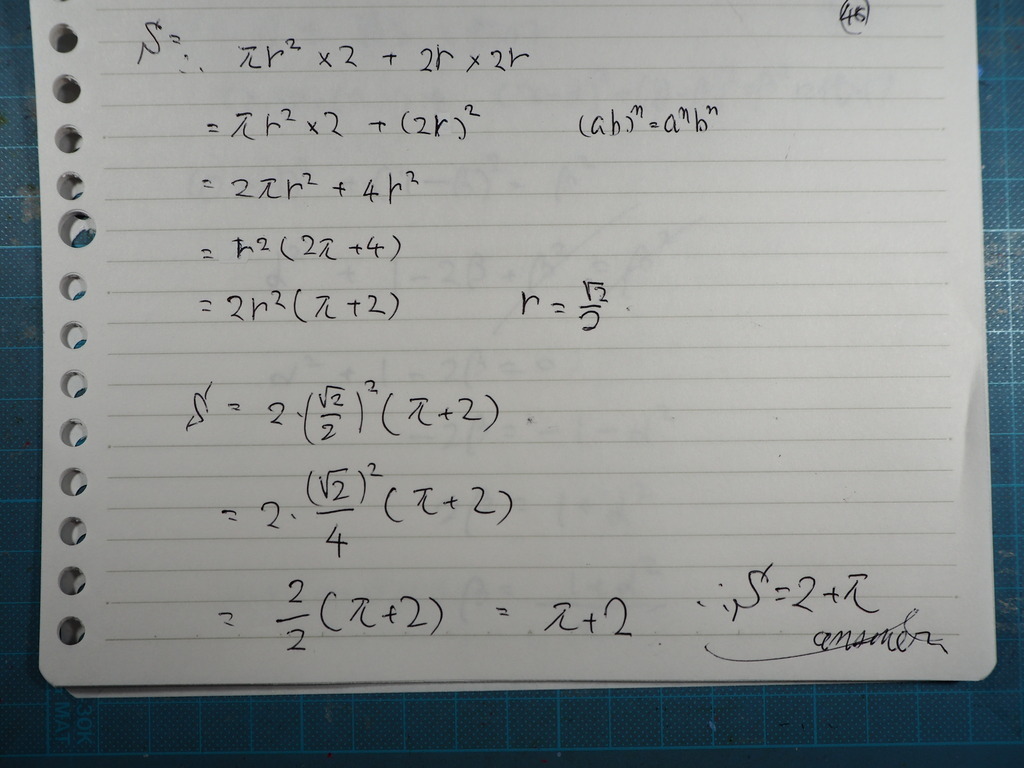 46
S = ∴ πr² × 2 + 2r × 2r
= πr² × 2 + (2r)² (ab)ⁿ = aⁿbⁿ
= 2πr² + 4r²
= r²(2π + 4)
= 2r²(π + 2) r = √2/2
S = 2·(√2/2)²(π + 2)
= 2·(√2)²/4 (π + 2)
= 2/2 (π + 2) = π + 2 ∴ S = 2 + π
answer
30K
MAT